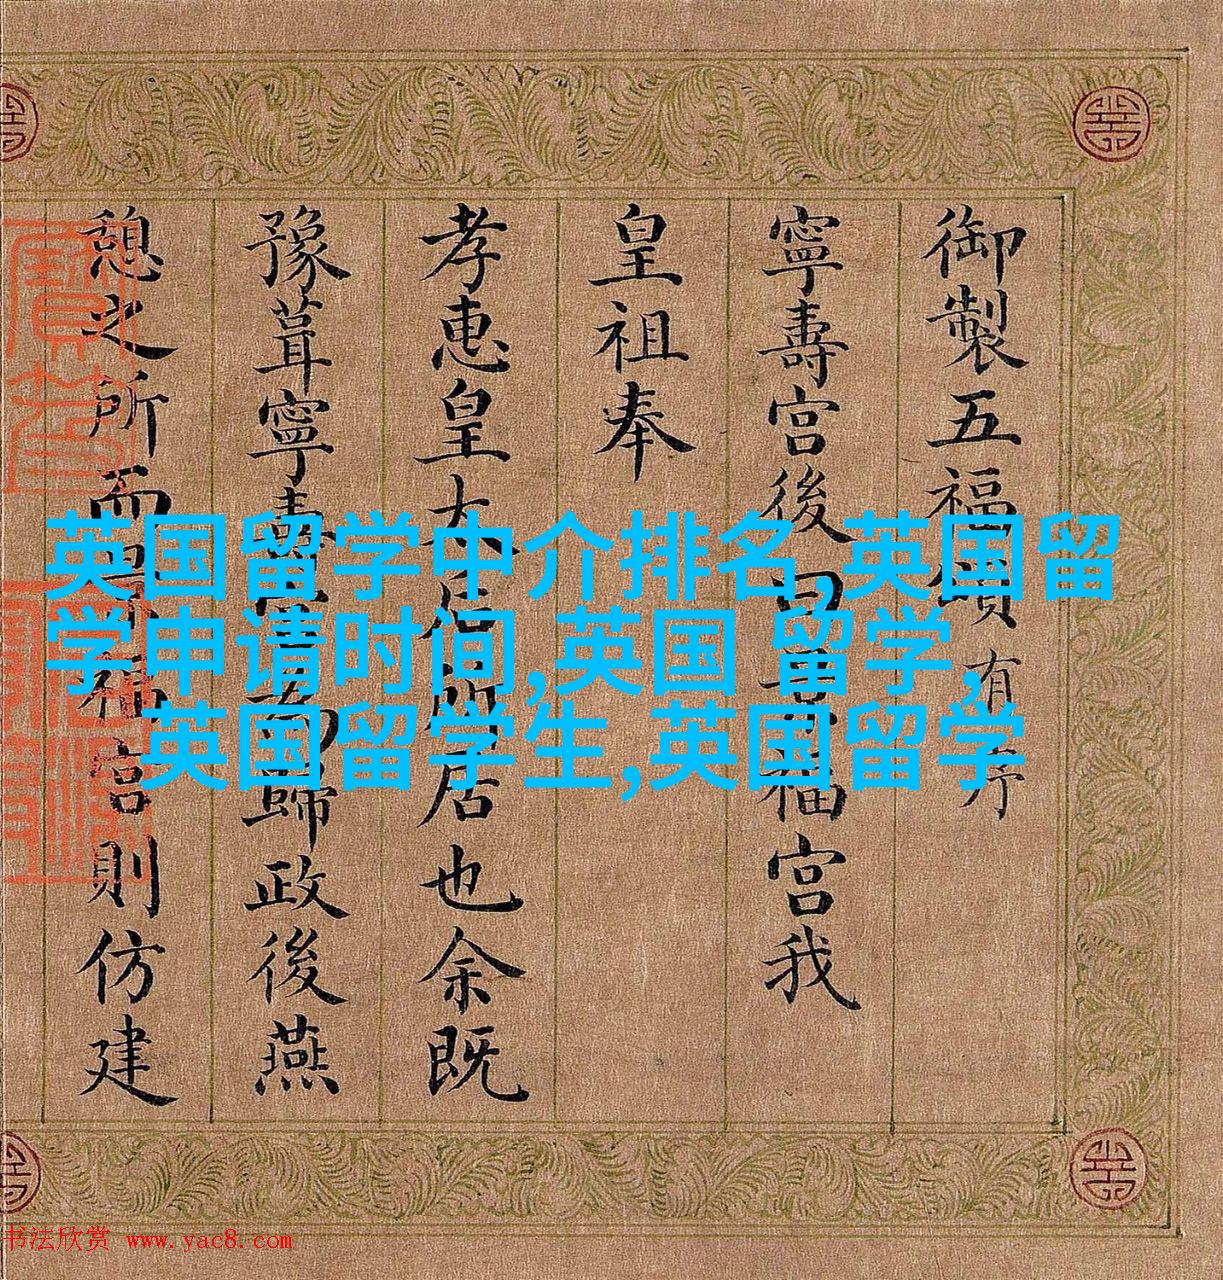 御製五福頌有序
寧壽宮後曰景福宮我
皇祖奉
孝惠皇太后所居也余既
豫葺寧壽宮為歸政後燕
憩之所而景福宮則仿建
英国留学中介排名,英国留
学申请时间,英国 留学,
英国留学生,英国留学
书法欣赏 www.yac8.com